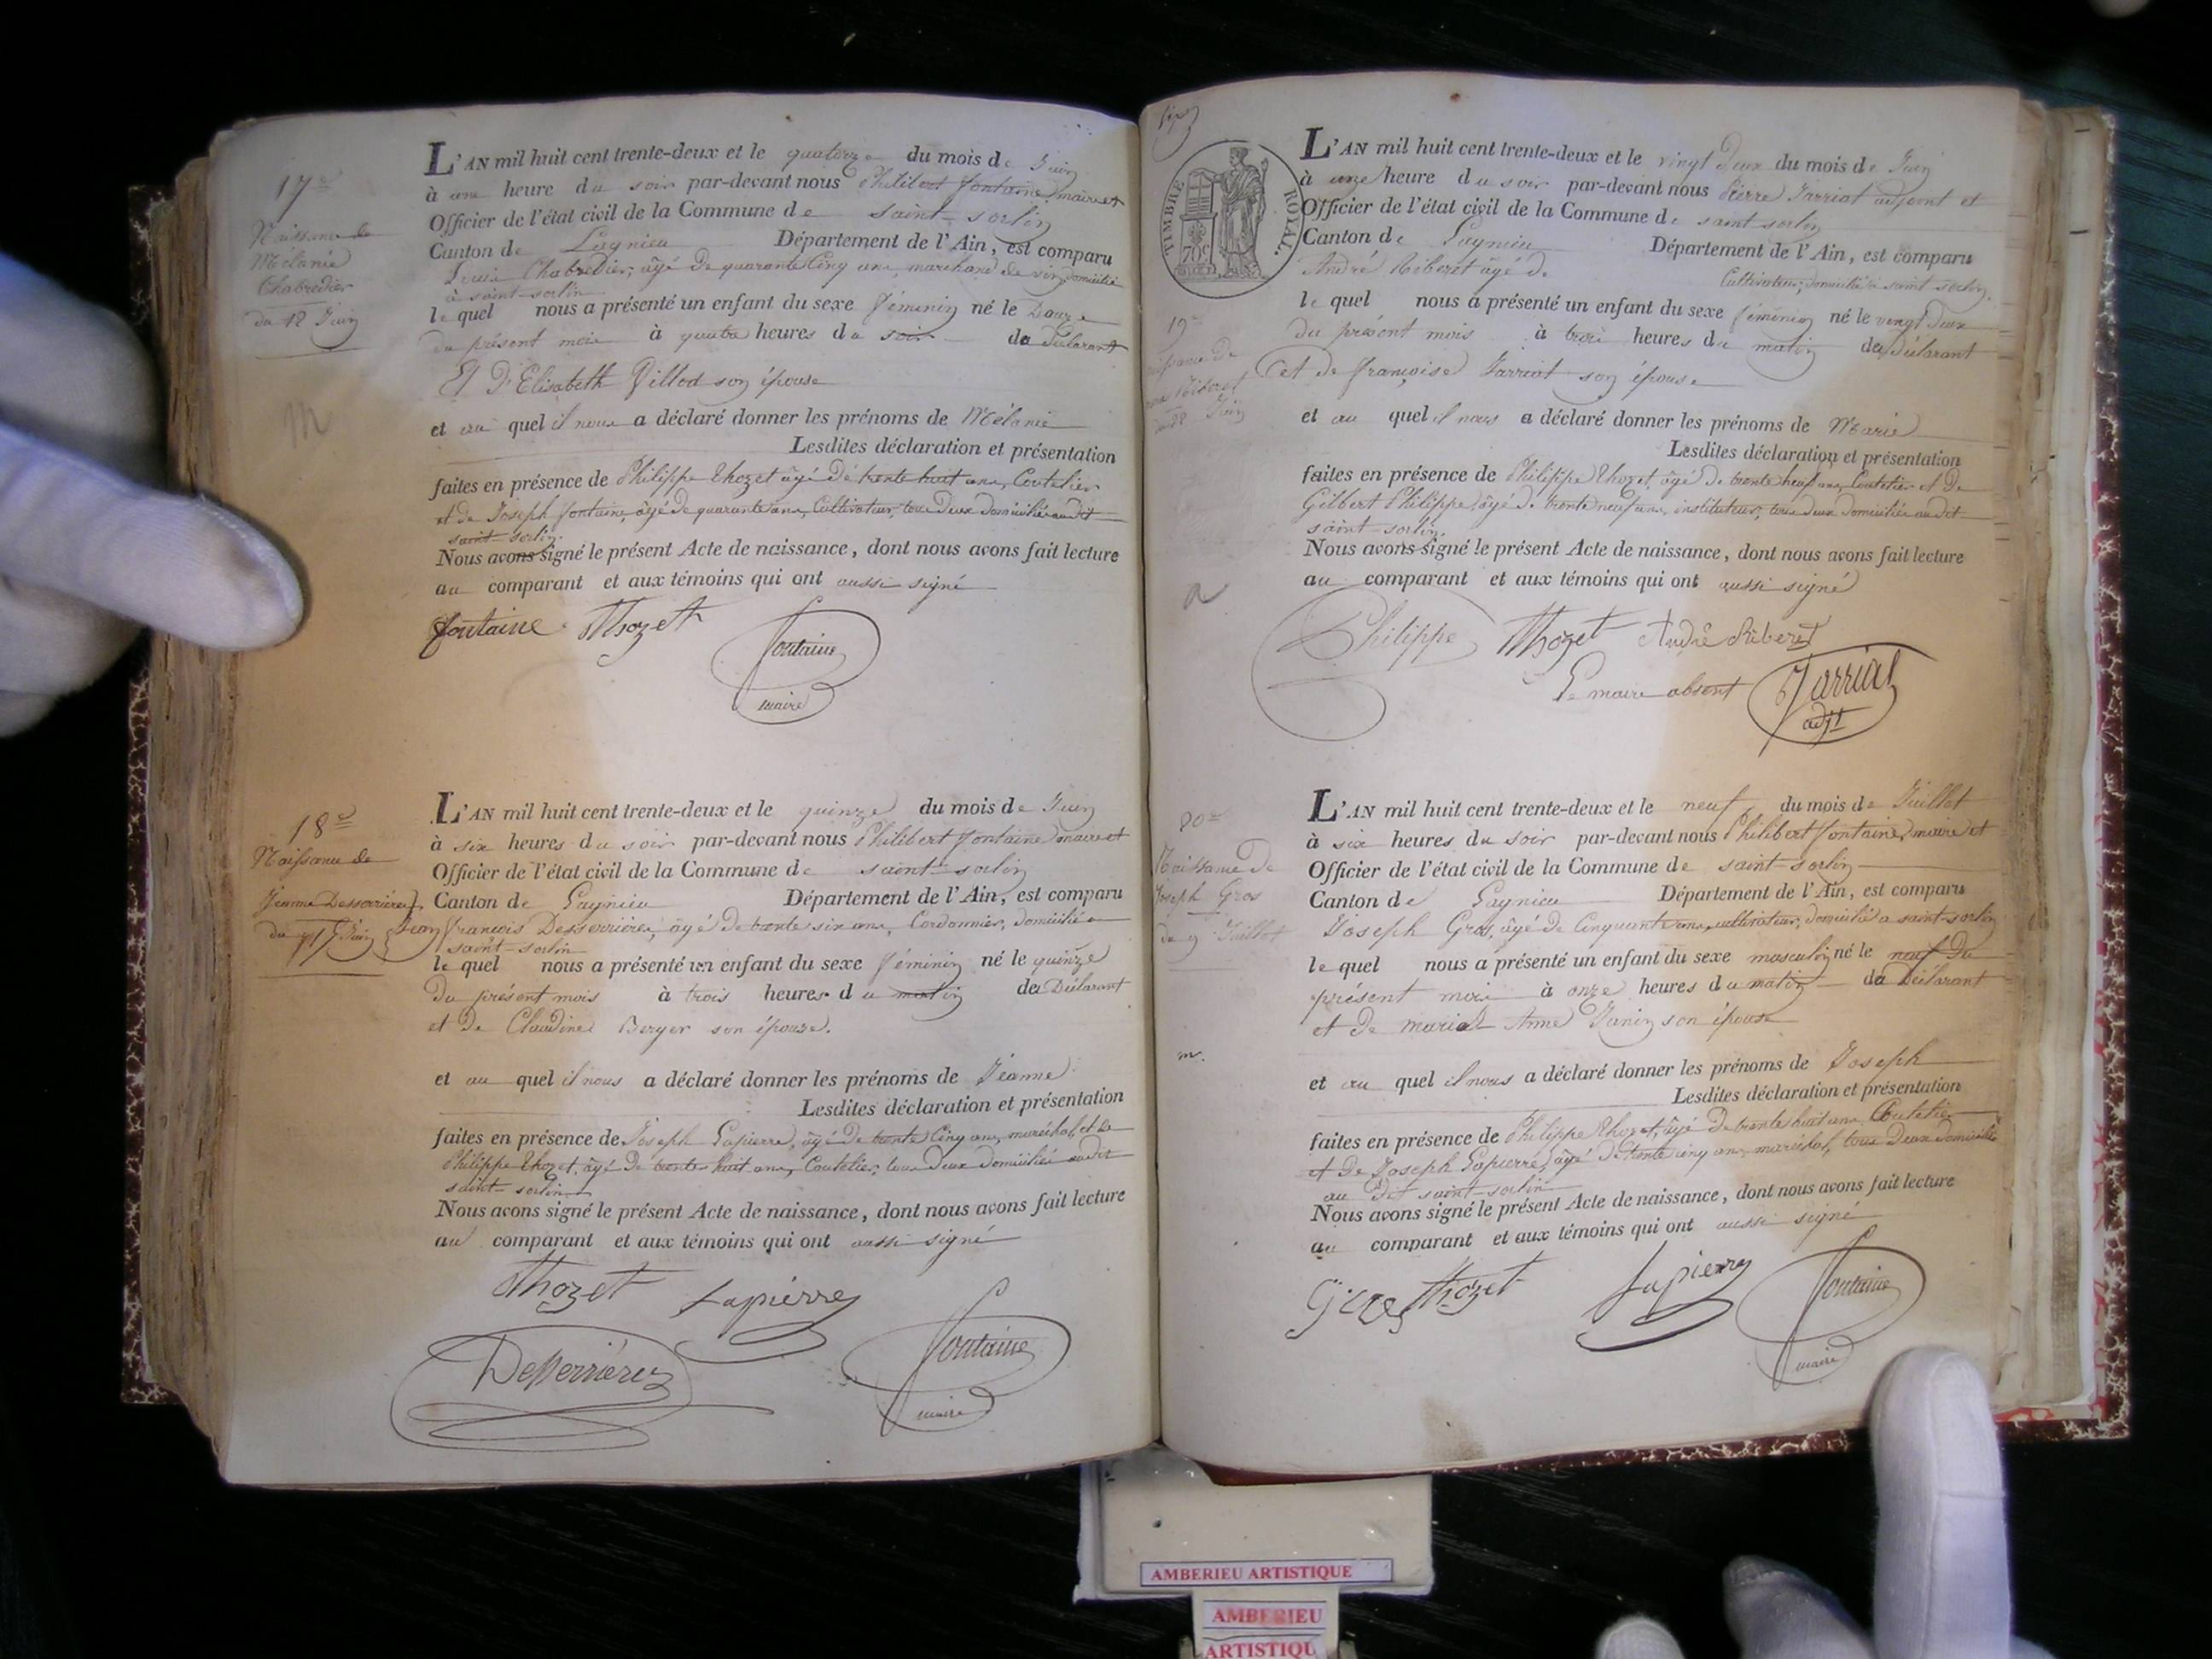 17e
Naissance de
Mélanie
Chabredier
du 12 Juin
m
L'AN mil huit cent trente-deux et le quatorze du mois de Juin
à une heure du soir par-devant nous Philibert fontaine, maire et
Officier de l'état civil de la Commune de saint-sorlin
Canton de Lagnieu Département de l'Ain, est comparu
Louis Chabredier, âgé de quarante cinq ans, marchand de vin, domicilié
à saint-sorlin
lequel nous a présenté un enfant du sexe féminin né le Douze
du présent mois à quatre heures du soir du déclarant
Et D'Elisabeth Villod son épouse
et au quel il nous a déclaré donner les prénoms de Mélanie
Lesdites déclaration et présentation
faites en présence de Philippe Thozet âgé de trente huit ans, Coutelier
et de Joseph fontaine, âgé de quarante ans, Cultivateur, tous deux domiciliés audit
saint-sorlin.
Nous avons signé le présent Acte de naissance, dont nous avons fait lecture
au comparant et aux témoins qui ont aussi signé
fontaine Thozet fontaine
maire
18e
Naissance de
Jeanne Desserrières
du 15 Juin
L'AN mil huit cent trente-deux et le quinze du mois de Juin
à six heures du soir par-devant nous Philibert fontaine maire et
Officier de l'état civil de la Commune de saint-sorlin
Canton de Lagnieu Département de l'Ain, est comparu
Jean françois Desserrières, âgé de trente six ans, Cordonnier, domicilié a
saint-sorlin
lequel nous a présenté un enfant du sexe féminin né le quinze
du présent mois à trois heures du matin du Déclarant
et de Claudine Berger son épouse.
et au quel il nous a déclaré donner les prénoms de Jeanne
Lesdites déclaration et présentation
faites en présence de Joseph Lapierre, âgé de trente cinq ans, maréchal, et de
Philippe Thozet, âgé de trente huit ans, Coutelier, tous deux domiciliés audit
saint-sorlin
Nous avons signé le présent Acte de naissance, dont nous avons fait lecture
au comparant et aux témoins qui ont aussi signé
Thozet Lapierre
Desserrières fontaine
maire
TIMBRE ROYAL.
70c
19e
L'AN mil huit cent trente-deux et le vingt deux du mois de Juin
à onze heure du soir par-devant nous Pierre Jarriat adjoint et
Officier de l'état civil de la Commune de saint sorlin
Canton de Lagnieu Département de l'Ain, est comparu
André Riberet âgé de
Cultivateur, domicilié à saint sorlin.
lequel nous a présenté un enfant du sexe féminin né le vingt deux
du présent mois à trois heures du matin de Déclarant
et de françoise Jarriat son épouse
et au quel il nous a déclaré donner les prénoms de Marie
Lesdites déclaration et présentation
faites en présence de Philippe Thozet, âgé de trente huit ans, Coutelier et de
Gilbert Philippe, âgé de trente neuf ans, instituteur, tous deux domiciliés audit
saint-sorlin.
Nous avons signé le présent Acte de naissance, dont nous avons fait lecture
au comparant et aux témoins qui ont aussi signé
Philippe Thozet André Riberet
Le maire absent Jarriat
adjt
20e
Naissance de
Joseph Gros
du 9 Juillet
m.
L'AN mil huit cent trente-deux et le neuf du mois de Juillet
à six heures du soir par-devant nous Philibert fontaine, maire et
Officier de l'état civil de la Commune de saint-sorlin
Canton de Lagnieu Département de l'Ain, est comparu
Joseph Gros, âgé de Cinquante ans, cultivateur, domicilié a saint-sorlin
lequel nous a présenté un enfant du sexe masculin né le neuf du
présent mois à onze heures du matin du Déclarant
et de marie Anne Janin son épouse
et au quel il nous a déclaré donner les prénoms de Joseph
Lesdites déclaration et présentation
faites en présence de Philippe Thozet, âgé de trente huit ans Coutelier
et de Joseph Lapierre, âgé de trente cinq ans, maréchal, tous deux domiciliés
au Dit saint-sorlin
Nous avons signé le présent Acte de naissance, dont nous avons fait lecture
au comparant et aux témoins qui ont aussi signé
Gros Thozet Lapierre fontaine
maire
AMBERIEU ARTISTIQUE
AMBERIEU
ARTISTIQU